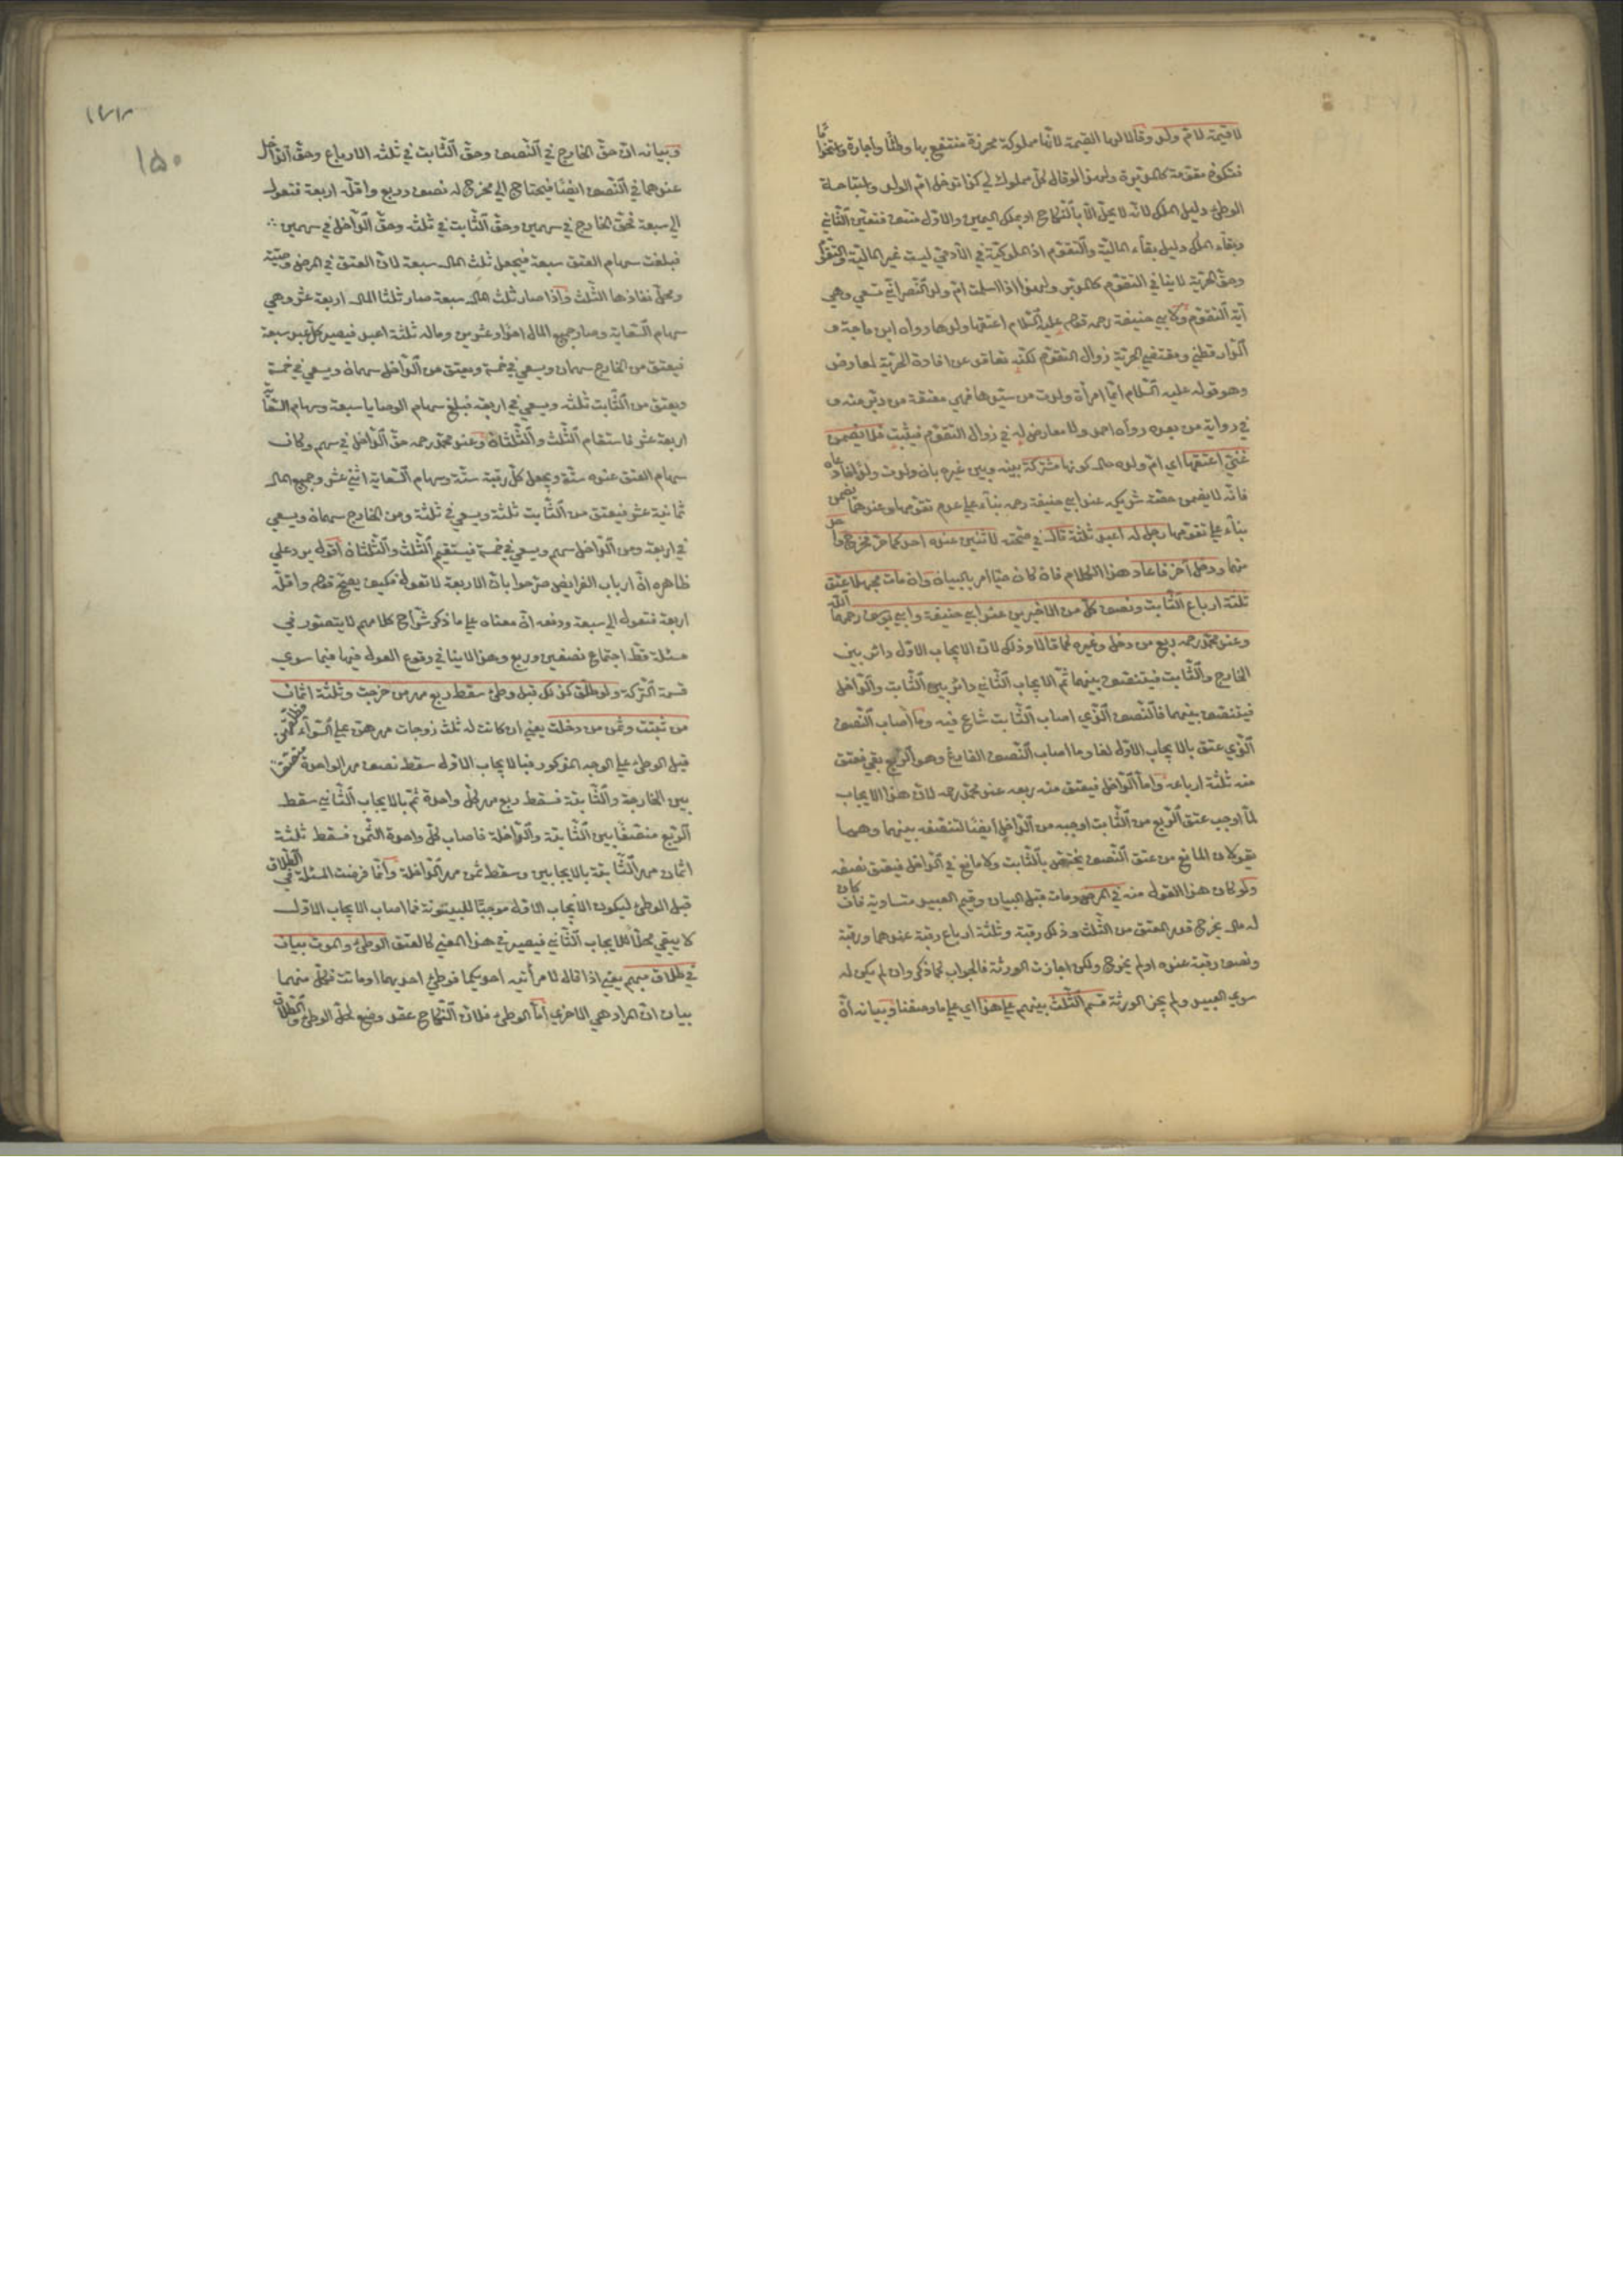 لا قيمة لام ولد وقالا لها القيمة لانها مملوكة محرزة منتفع بها وطئا واجارة واستخداما
فتكون متقومة كالمدبرة ولهذا لو قال كل مملوك لي كذا تدخل ام الولد واستباحة
الوطئ دليل الملك لانه لا يحل الا بالنكاح او بملك اليمين والاول منتف فتعين الثاني
وبقاء الملك دليل بقاء المالية والتقوم اذ المملوكية في الآدمي ليست غير المالية والتقوم
وحق الحرية لا ينافي التقوم كالمدبر ولهذا اذا اسلمت ام ولد النصراني تسعى وهي
آية التقوم ولابي حنيفة رحمه قوله عليه السلام اعتقها ولدها رواه ابن ماجة و
الدارقطني ومقتضى الحرية زوال التقوم لكنه تقاعد عن افادة الحرية لمعارض
وهو قوله عليه السلام ايما امرأة ولدت من سيدها فهي معتقة من دبر منه و
في رواية من بعده رواه احمد ولا معارض له في زوال التقوم فيثبت فلا يضمن
غني اعتقها اي ام ولده حال كونها مشتركة بينه وبين غيره بان ولدت ولدا فادعاه
فانه لا يضمن حصة شريكه عند ابي حنيفة رحمه بناء على عدم تقومها وعندهما يضمن
بناء على تقومها رجل له اعبد ثلثة قال في صحته لاثنين عنده احدكما حر فخرج واحد
منهما ودخل آخر فاعاد هذا الكلام فان كان حيا امر بالبيان وان مات مجهلا عتق
ثلثة ارباع الثابت ونصف كل من الاخيرين عند ابي حنيفة وابي يوسف رحمهما الله
وعند محمد رحمه ربع من دخل وغيره كما قالا وذلك لان الايجاب الاول دائر بين
الخارج والثابت فيتنصف بينهما ثم الايجاب الثاني دائر بين الثابت والداخل
فيتنصف بينهما فالنصف الذي اصاب الثابت شائع فيه وما اصاب النصف
الذي عتق بالايجاب الاول لغا وما اصاب النصف الفارغ وهو الربع بقي فعتق
منه ثلثة ارباعه واما الداخل فيعتق منه ربعه عند محمد رحمه لان هذا الايجاب
لما اوجب عتق الربع من الثابت اوجبه من الداخل ايضا لتنصفه بينهما وهما
يقولان المانع من عتق النصف يختص بالثابت ولا مانع في الداخل فيعتق نصفه
ولو كان هذا القول منه في المرض ومات قبل البيان وقيم العبيد متساوية فان كان
له مال يخرج قدر العتق من الثلث وذلك رقبة وثلثة ارباع رقبة عندهما ورقبة
ونصف رقبة عنده او لم يخرج ولكن اجازت الورثة فالجواب كما ذكر وان لم يكن له
سوى العبيد ولم يجز الورثة قسم الثلث بينهم على هذا اي على ما وصفنا وبيانه ان
١٥٠
وبيانه ان حق الخارج في النصف وحق الثابت في ثلثة الارباع وحق الداخل
عندهما في النصف ايضا فيحتاج الى مخرج له نصف وربع واقله اربعة فتعول
الى سبعة فحق الخارج في سهمين وحق الثابت في ثلثة وحق الداخل في سهمين
فبلغت سهام العتق سبعة فيجعل ثلث المال سبعة لان العتق في المرض وصية
ومحل نفاذها الثلث واذا صار ثلث المال سبعة صار ثلثا المال اربعة عشر وهي
سهام السعاية وصار جميع المال احدا وعشرين وماله ثلثة اعبد فيصير كل عبد سبعة
فيعتق من الخارج سهمان ويسعى في خمسة ويعتق من الداخل سهمان ويسعى في خمسة
ويعتق من الثابت ثلثة ويسعى في اربعة فبلغ سهام الوصايا سبعة وسهام السعاية
اربعة عشر فاستقام الثلث والثلثان وعند محمد رحمه حق الداخل في سهم وكان
سهام العتق عنده ستة ويجعل كل رقبة ستة وسهام السعاية اثني عشر وجميع المال
ثمانية عشر فيعتق من الثابت ثلثة ويسعى في ثلثة ومن الخارج سهمان ويسعى
في اربعة ومن الداخل سهم ويسعى في خمسة فيستقيم الثلث والثلثان اقول يرد على
ظاهره ان ارباب الفرايض صرحوا بان الاربعة لا تعول فكيف يصح قولهم واقله
اربعة فتعول الى سبعة ودفعه ان معناه على ما ذكر شراح كلامهم لا يتصور في
مسئلة قط اجتماع نصفين وربع وهذا لا ينافي وقوع العول فيها فيما سوى
قسمة التركة ولو طلق كذلك قبل وطئ سقط ربع مهر من خرجت وثلثة اثمان
من ثبتت وثمن من دخلت يعني ان كانت له ثلث زوجات مهرهن على السواء فطلقهن
قبل الوطئ على الوجه المذكور فبالايجاب الاول سقط نصف مهر الواحدة منصفا
بين الخارجة والثابتة فسقط ربع مهر كل واحدة ثم بالايجاب الثاني سقط
الربع منصفا بين الثابتة والداخلة فاصاب كل واحدة الثمن فسقط ثلثة
اثمان مهر الثابتة بالايجابين وسقط ثمن مهر الداخلة وانما فرضت المسئلة في الطلاق
قبل الوطئ ليكون الايجاب الاول موجبا للبينونة فما اصاب الايجاب الاول
لا يبقى محلا للايجاب الثاني فيصير في هذا المعنى كالعتق الوطئ والموت بيان
في طلاق مبهم يعني اذا قال لامرأتيه احديكما فوطئ احديهما او ماتت فكل منهما
بيان ان المراد هي الاخرى اما الوطئ فلان النكاح عقد وضع لحل الوطئ والطلاق